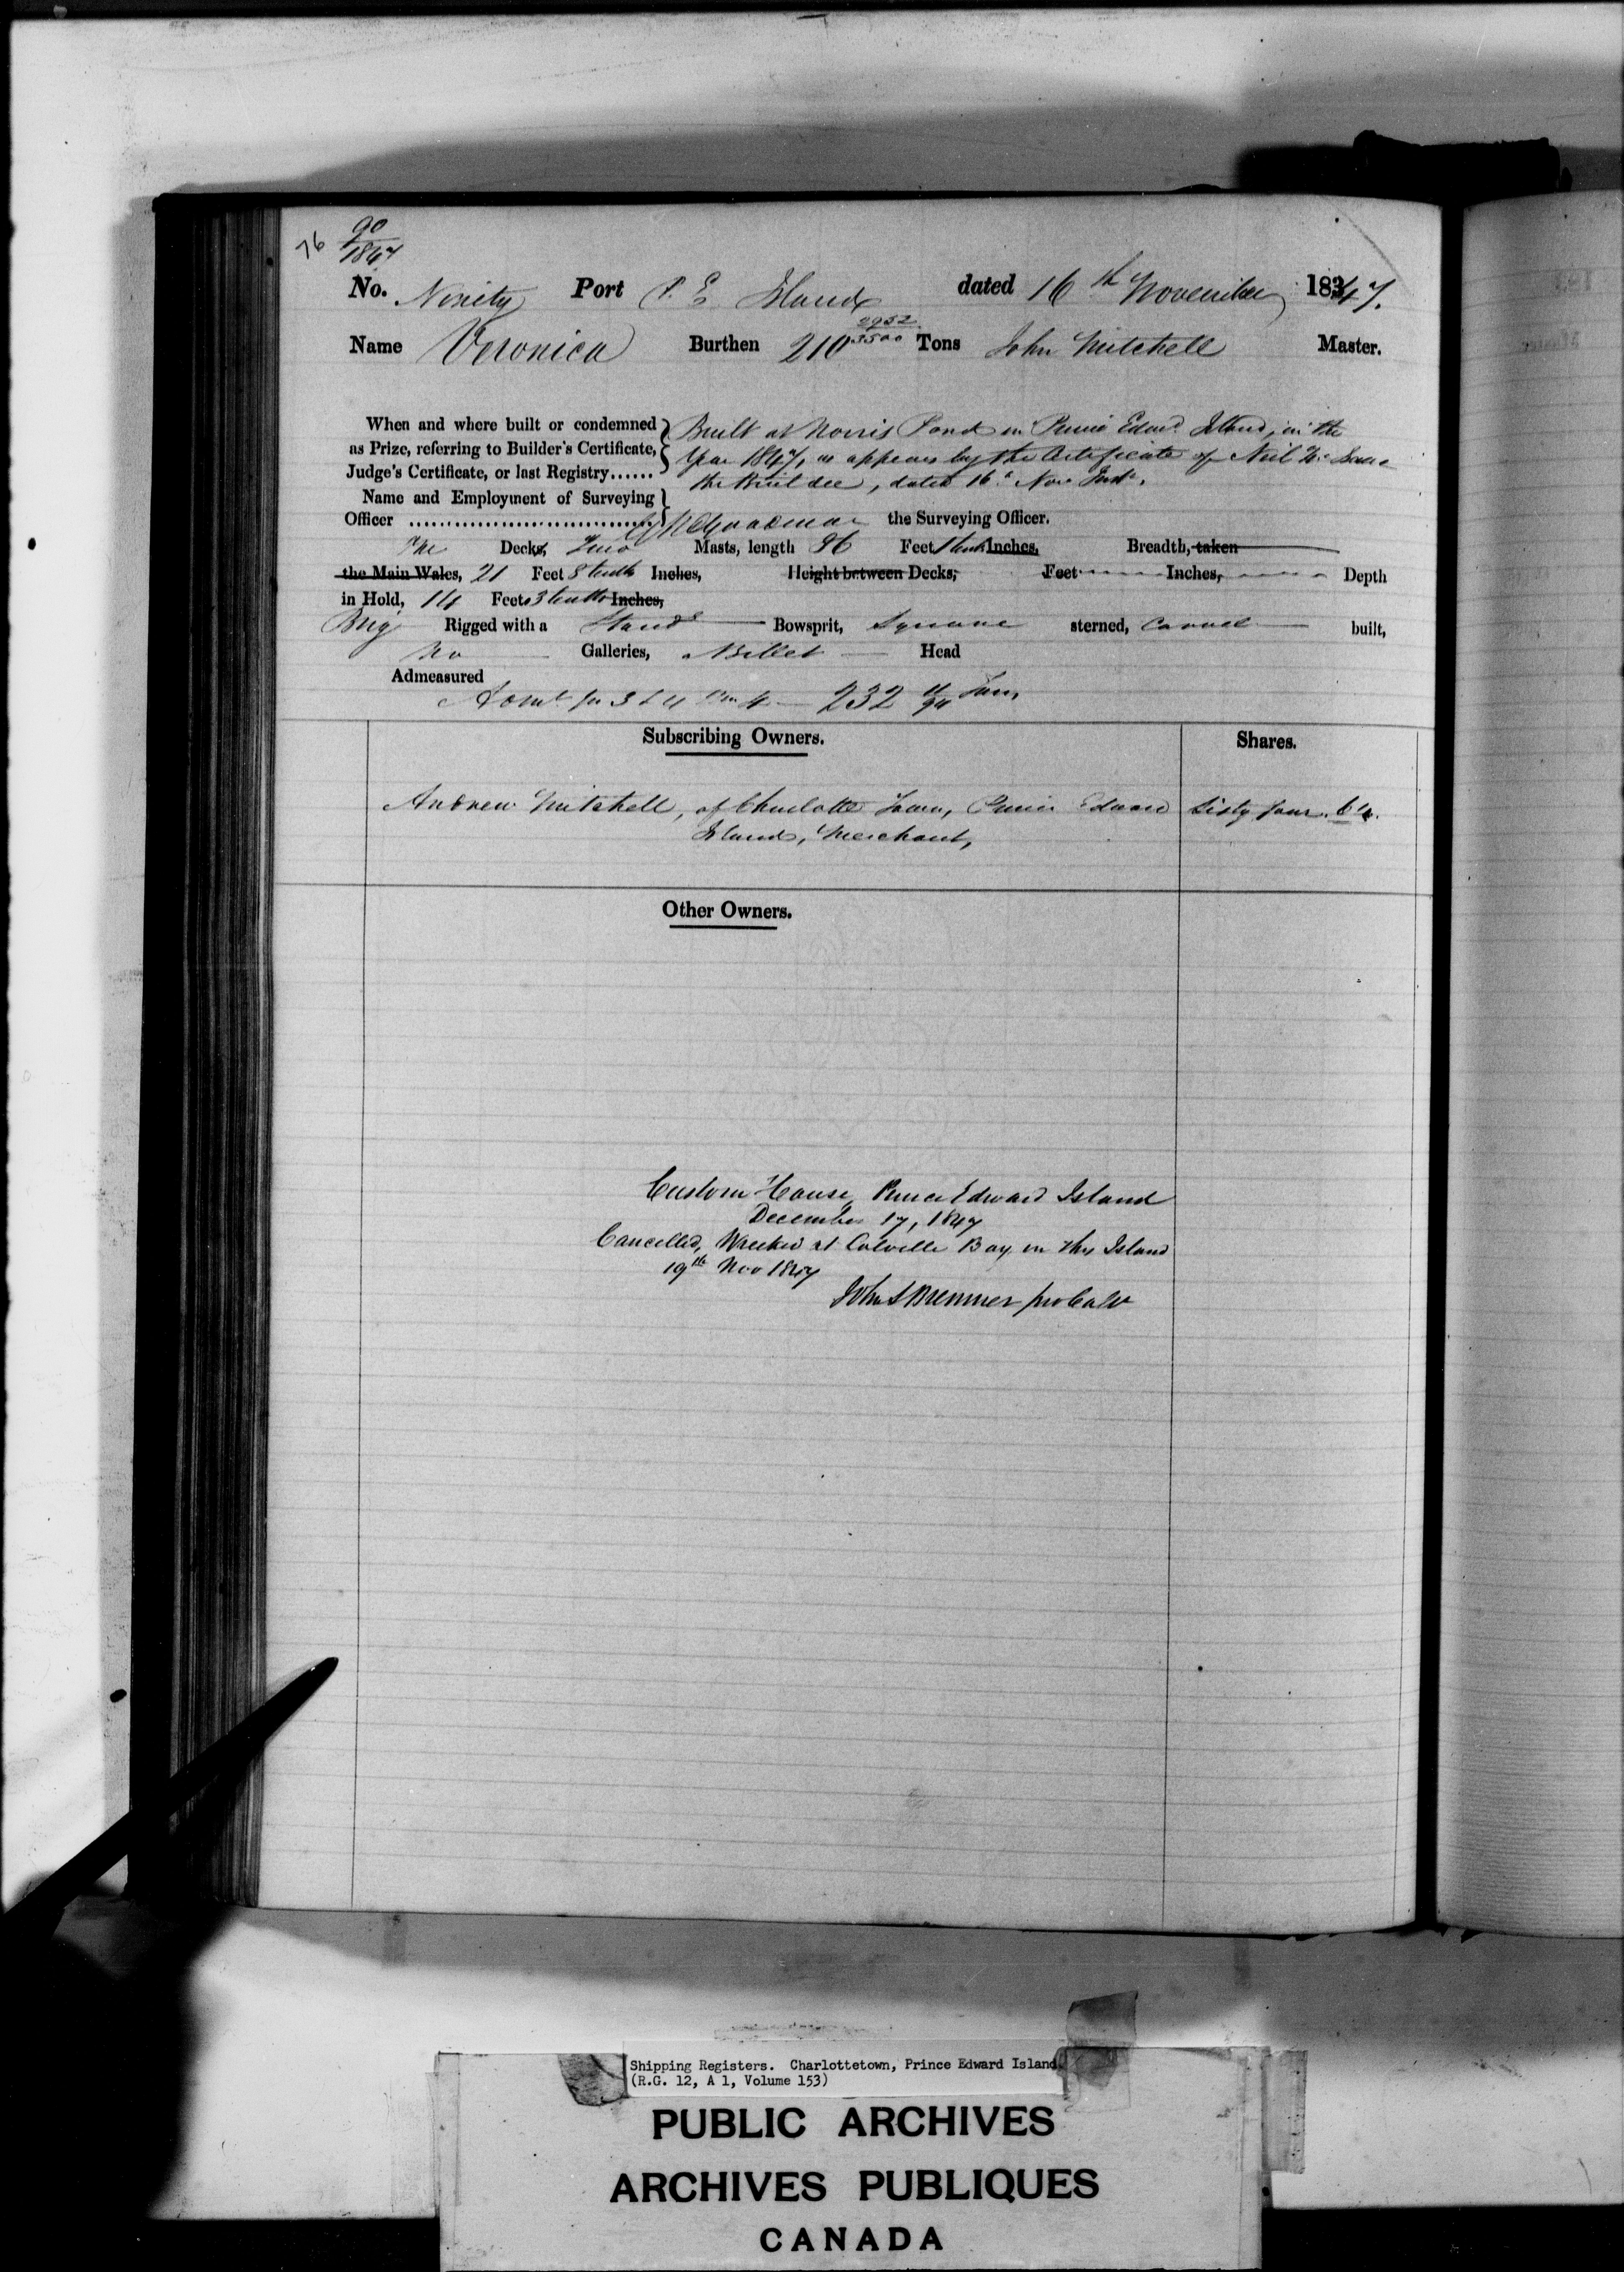 76 90/1847
No. Ninety Port P. E. Island dated 16th November 1847.
Name Veronica Burthen 210 0952/3500 Tons John Mitchell Master.
When and where built or condemned as Prize, referring to Builder's Certificate, Judge's Certificate, or last Registry......
Built at Norris Pond in Prince Edwd. Island, in the
Year 1847, as appears by the Certificate of Neil Mc
the Builder, dated 16th Nov. Inst.
Name and Employment of Surveying
Officer ................................ the Surveying Officer.
One Decks, Two Masts, length 86 Feet 1 tenth Inches, Breadth, taken
the Main Wales, 21 Feet 8 tenths Inches, Height between Decks, Feet Inches, Depth
in Hold, 14 Feet 3 tenths Inches,
Brig Rigged with a Standg Bowsprit, Square sterned, Carvel built,
No Galleries, Billet Head
Admeasured
232 11/94 Tons
Subscribing Owners. Shares.
Andrew Mitchell, of Charlotte Town, Prince Edward Sixty four. 64.
Island, Merchant,
Other Owners.
Custom House, Prince Edward Island
December 17, 1847
Cancelled, Wrecked at Colville Bay in this Island
19th Nov 1847
John S Bremner pro
Shipping Registers. Charlottetown, Prince Edward Island.
(R.G. 12, A 1, Volume 153)
PUBLIC ARCHIVES
ARCHIVES PUBLIQUES
CANADA